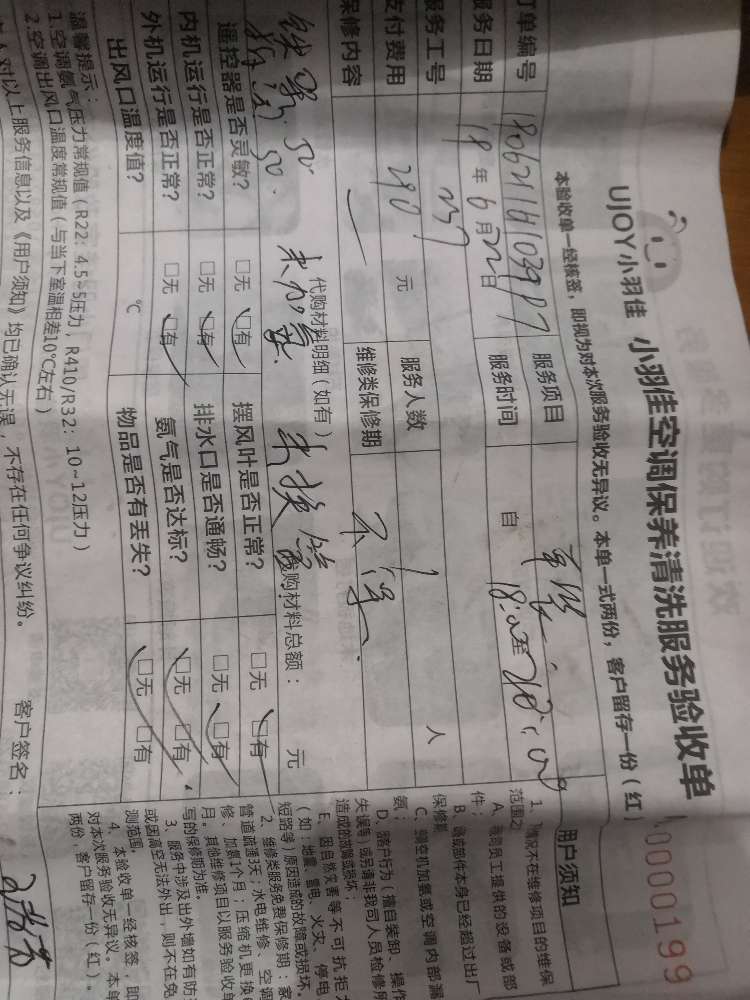 UJOY小羽佳 小羽佳空调保养清洗服务验收单
0000199
本验收单一经核签，即视为对本次服务验收无异议。本单一式两份，客户留存一份（红）
订单编号
服务项目
服务日期 18 年 6 月 22 日
服务时间 自 18:00 至
服务工号
服务人数 1 人
支付费用 290 元
保修内容
维修类保修期
代购材料明细（如有）
代购材料总额： 元
未加氟
未换管
遥控器是否灵敏？ □无 □有
摆风叶是否正常？ □无 □有
内机运行是否正常？ □无 □有
排水口是否通畅？ □无 □有
外机运行是否正常？ □无 □有
氨气是否达标？ □无 □有
出风口温度值？ ℃
物品是否有丢失？ □无 □有
温馨提示：
1.空调氨气压力常规值（R22：4.5~5压力，R410/R32：10~12压力）
2.空调出风口温度常规值（与当下室温相差10℃左右）
对以上服务信息以及《用户须知》均已确认无误，不存在任何争议纠纷。
客户签名：
用户须知
1、情况不在维修项目的维保
范围之
A、我司员工提供的设备或部
件；
B、确或部件本身已经超过出厂
保修期
C、调空机加氨或空调内部漏
氨；
D、因客户行为（擅自装卸、操作
失误等）或另请非我司人员检修所
造成的故障或损坏；
E、因自然灾害等不可抗拒
（如：地震、雷电、火灾、停电
短路等）原因造成的故障或损坏。
2、维修类服务免费保修期：家
管道疏通3天；水电维修、空调
修、加氨1个月；压缩机更换
月。其他维修项目以服务验收单
写的保修期为准。
3、服务中涉及出外墙如有防
或因高空无法外出，则不在免
测范围。
4、本验收单一经核签，即
对本次服务验收无异议。本单
两份，客户留存一份（红）。